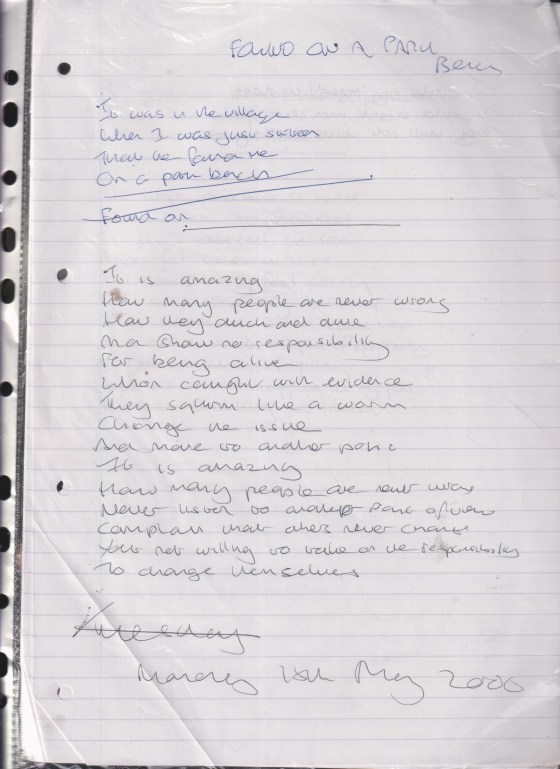 FOUND ON A PARK
Bench
It was in the village
When I was just sixteen
That he found me
On a park bench
Found on
It is amazing
How many people are never wrong
How they duck and dive
And show no responsibility
For being alive
When caught with evidence
They squirm like a worm
Change the issue
And move to another point
It is amazing
How many people are never wrong
Never listen to another point of view
Complain that others never change
Yet not willing to take on the responsibility
To change themselves
Tuesday
Monday 15th May 2000